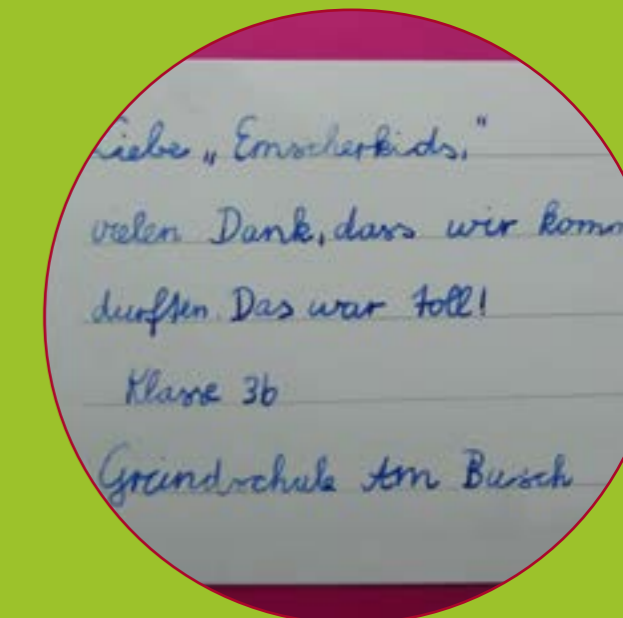 Liebe „Emscherkids,"
vielen Dank, dass wir komm
durften. Das war toll!
Klasse 3b
Grundschule Am Busch